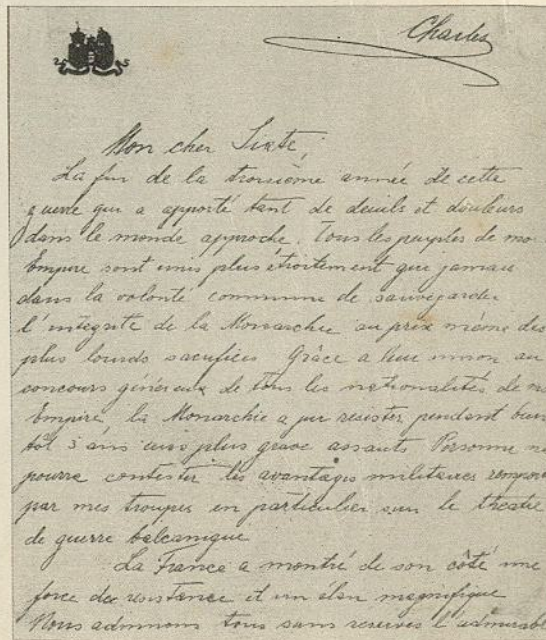 Charles
Mon cher Sixte,
La fin de la troisième année de cette
guerre qui a apporté tant de deuils et douleurs
dans le monde approche. Tous les peuples de mo
Empire sont unis plus étroitement que jamais
dans la volonté commune de sauvegarder
l'intégrité de la Monarchie au prix même des
plus lourds sacrifices Grâce a leur union au
concours généreux de tous les nationalités de m
Empire, la Monarchie a pu resister, pendant bien
tot 3 ans aux plus grave assauts Personne ne
pourra contester les avantages militaires rempor
par mes troupes en particulier sur le théatre
de guerre balcanique
La France a montré de son côté une
force de resistance et un élan magnifique
Nous admirons tous sans reserves l'admirabl